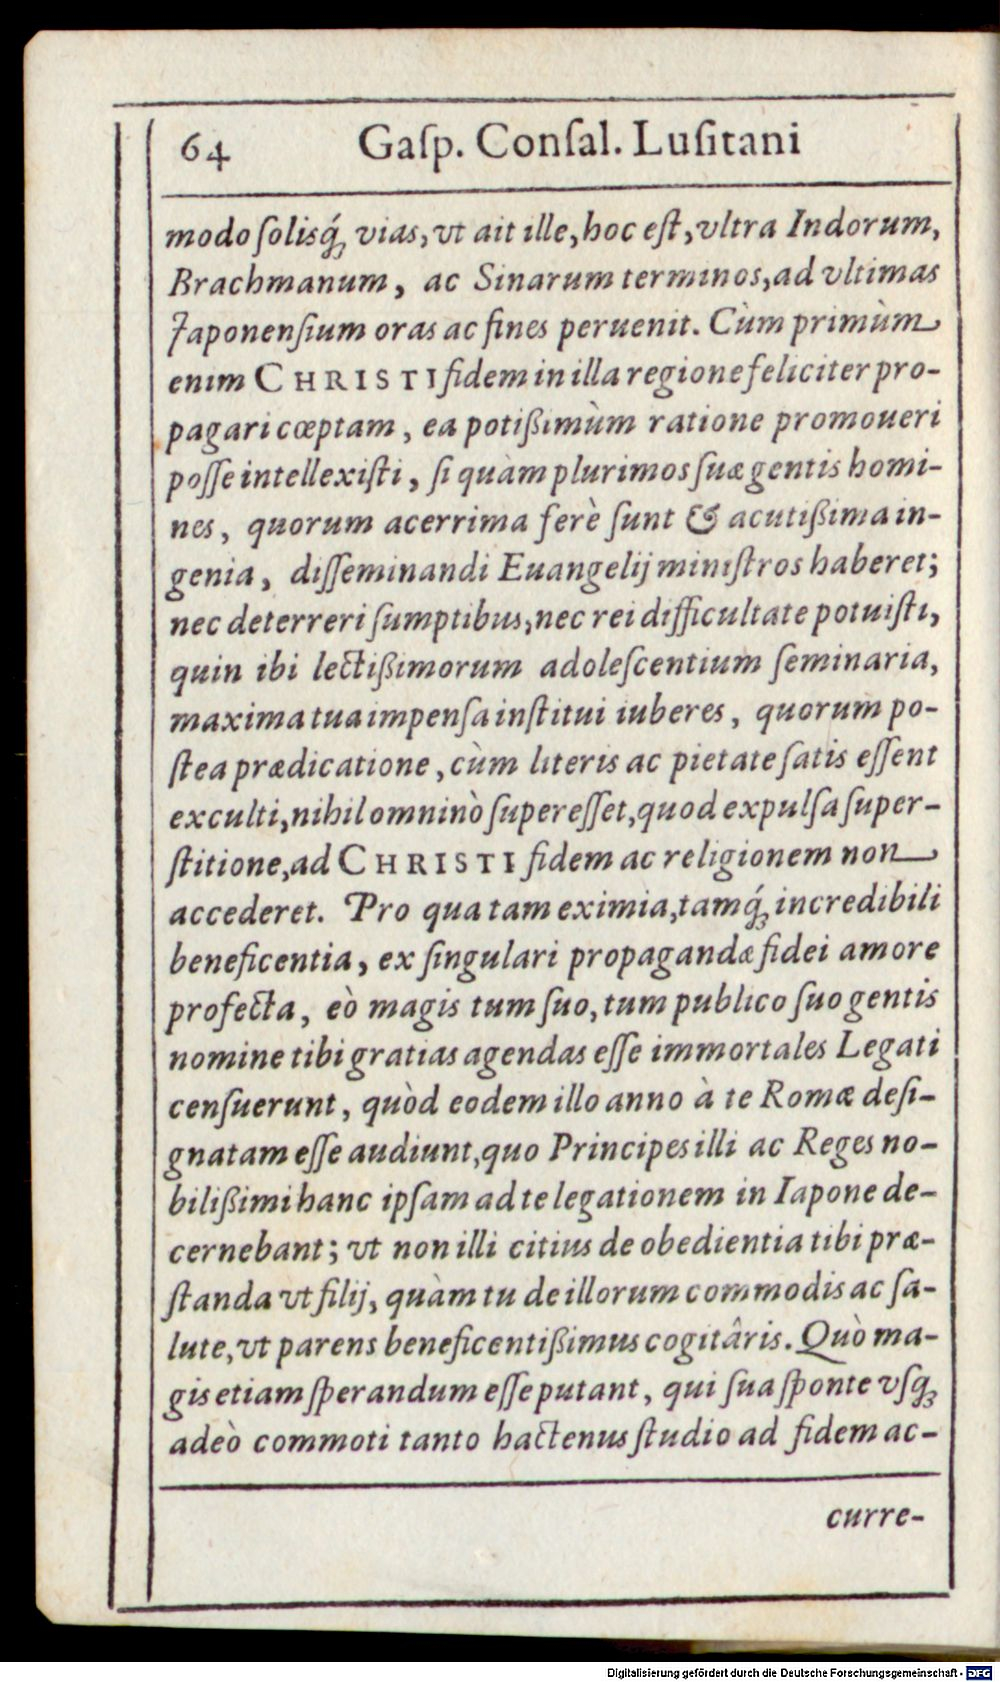 64 Gaſp. Conſal. Luſitani
modo ſolisq́ꝫ vias, vt ait ille, hoc eſt, vltra Indorum,
Brachmanum, ac Sinarum terminos, ad vltimas
Japonenſium oras ac fines peruenit. Cùm primùm
enim CHRISTI fidem in illa regione feliciter pro-
pagari cœptam, ea potißimùm ratione promoueri
poſſe intellexiſti, ſi quàm plurimos ſuæ gentis homi-
nes, quorum acerrima ferè ſunt & acutißima in-
genia, diſſeminandi Euangelij miniſtros haberet;
nec deterreri ſumptibus, nec rei difficultate potuiſti,
quin ibi lectißimorum adoleſcentium ſeminaria,
maxima tua impenſa inſtitui iuberes, quorum po-
ſtea prædicatione, cùm literis ac pietate ſatis eſſent
exculti, nihil omninò ſupereſſet, quod expulſa ſuper-
ſtitione, ad CHRISTI fidem ac religionem non
accederet. Pro qua tam eximia, tamq́ꝫ incredibili
beneficentia, ex ſingulari propagandæ fidei amore
profecta, eò magis tum ſuo, tum publico ſuo gentis
nomine tibi gratias agendas eſſe immortales Legati
cenſuerunt, quòd eodem illo anno à te Romæ deſi-
gnatam eſſe audiunt, quo Principes illi ac Reges no-
bilißimi hanc ipſam ad te legationem in Iapone de-
cernebant; vt non illi citius de obedientia tibi præ-
ſtanda vt filij, quàm tu de illorum commodis ac ſa-
lute, vt parens beneficentißimus cogitâris. Quò ma-
gis etiam ſperandum eſſe putant, qui ſua ſponte vſqꝫ
adeò commoti tanto hactenus ſtudio ad fidem ac-
curre-
Digitalisierung gefördert durch die Deutsche Forschungsgemeinschaft - DFG